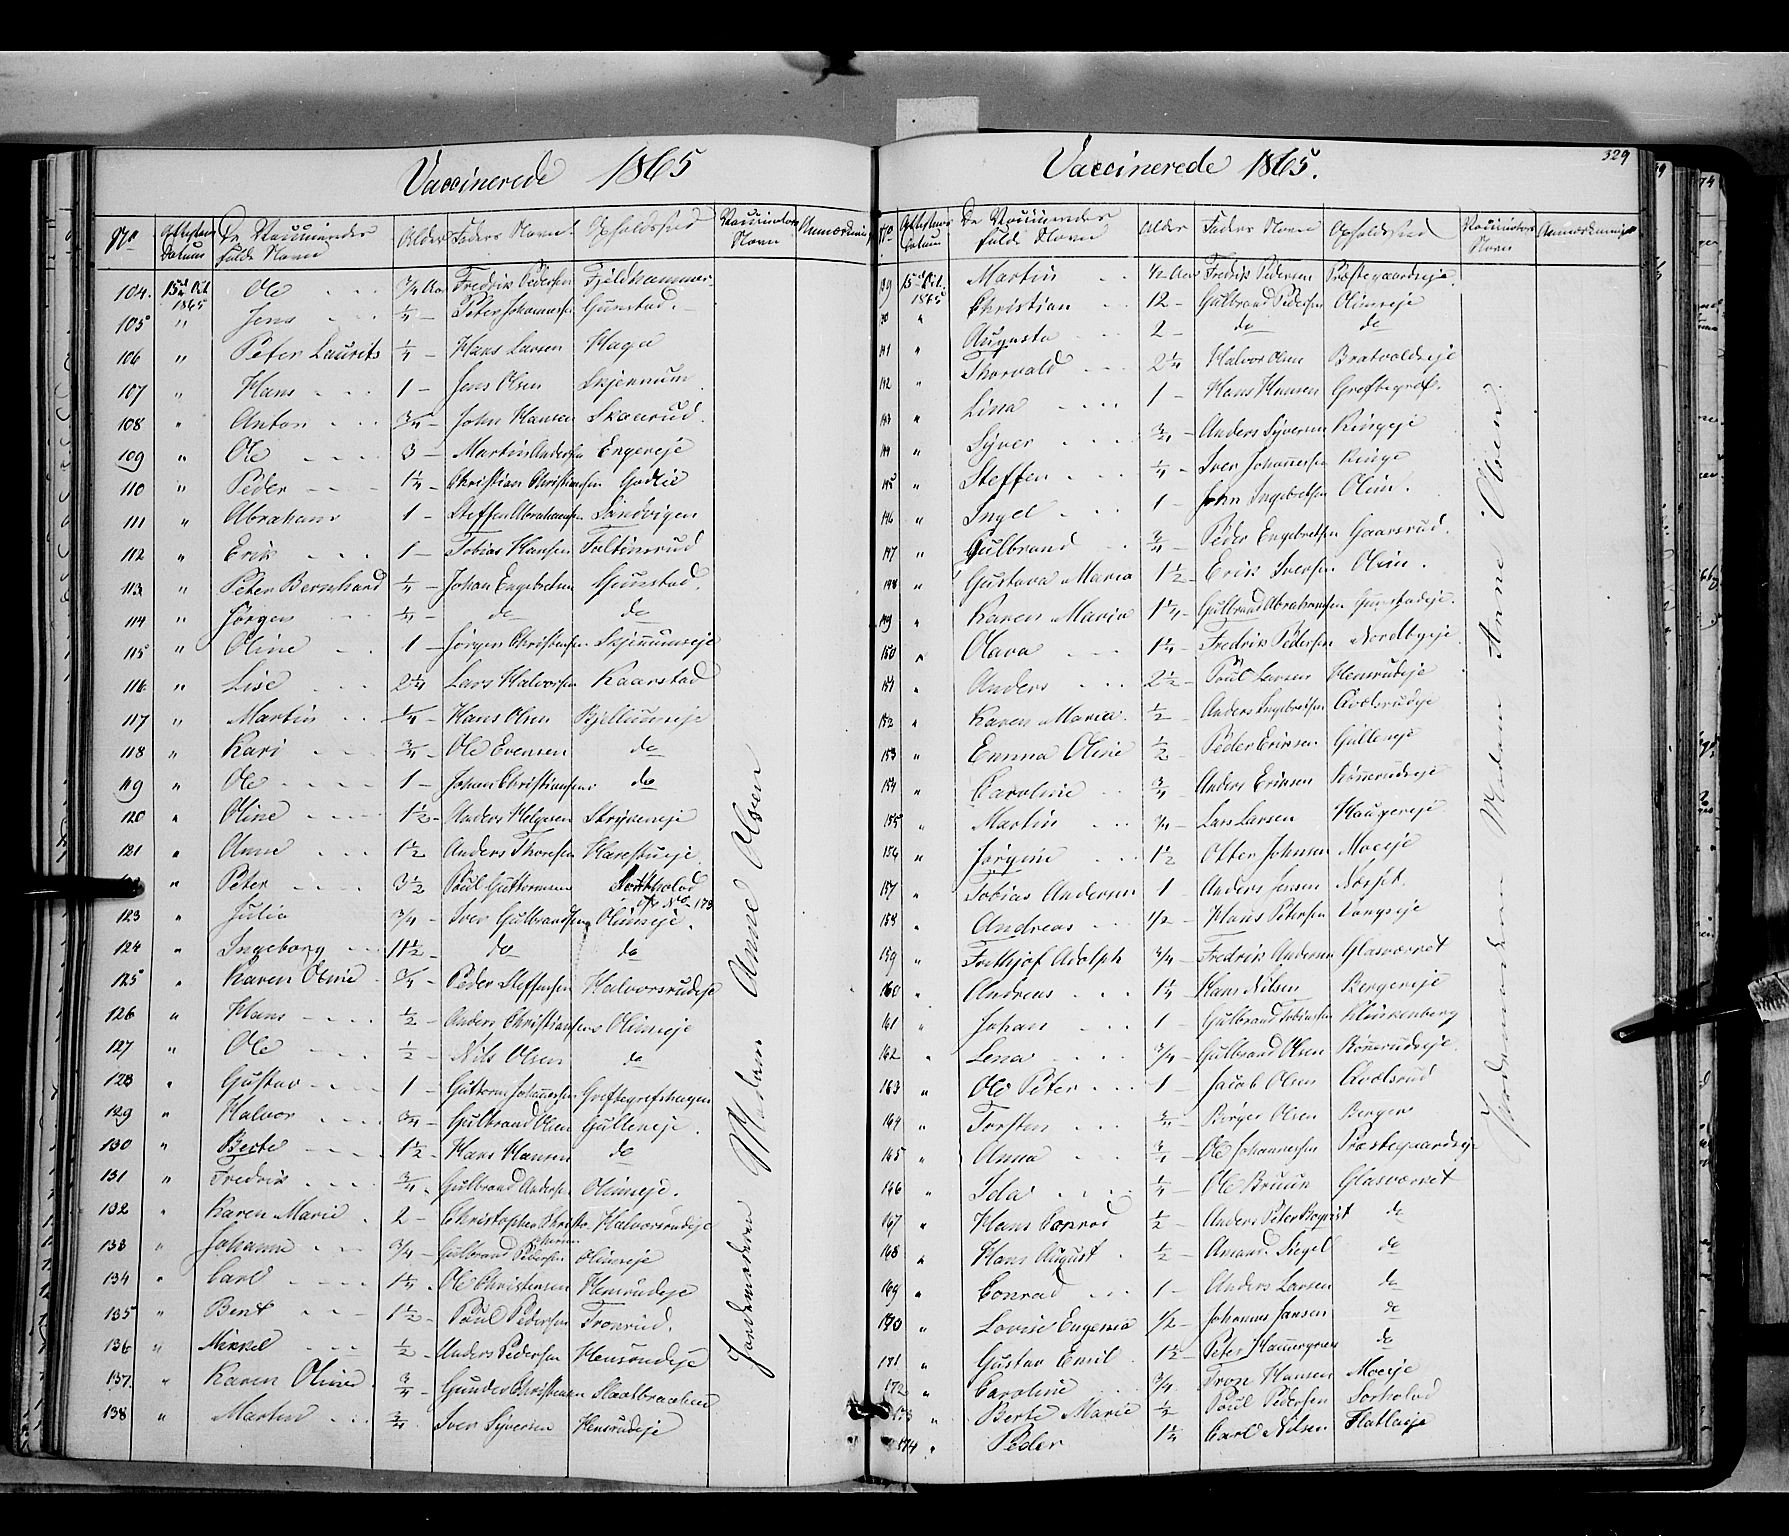 Vaccinerede 1865
No. Attestens Datum De Vaccineredes fulde Navn Alder Faders Navn Opholdssted Vaccinators Navn Anmærkning
104. 15de Oct. 1865 Ole 3/4 Aar Fredrik Pedersen Fjeldhammer
105 " Jens 1/4 - Peter Johannessen Gunstad.
106 " Peter Laurits 1/4 - Hans Larsen Haga
107 " Hans 1 - Jens Olsen Skjennum
108 " Anton 3/4 - John Hansen Skonrud.
109 " Ole 3 - Martin Andersen Engereje
110 " Peder 1 1/4 - Christian Christiansen Godlie
111 " Abraham 1 - Steffen Abrahamsen Sandvigen
112 " Erik 1 - Tobias Hansen Foltinsrud
113 " Peter Bernhard 1/4 - Johan Engebretsen Gunstad.
114 " Jørgen 1/4 - do do
115 " Oline 1 - Jørgen Christiansen Skjennumseje
116 " Lise 2 1/4 - Lars Halvorsen Kaarstad
117 " Martin 1/4 - Hans Olsen Bjellumseje
118 " Kari 3/4 - Ole Evensen do
119 " Ole 1 - Johan Christiansen do
120 " Oline 1 1/2 - Anders Helgesen Strøveneje
121 " Anne 1 1/2 Anders Thoresen Harestueje
" Peter 3 1/2 Poul Guttormsen Sortholad
cfr No. 173
123 " Julia 3/4 - Iver Gulbrandsen Olimseje.
124 " Ingeborg 11 1/2 - do do
125 " Karen Oline 3/4 - Peder Steffensen Halvorsrudeje
126 " Hans 1/2 - Anders Christiansen Olimseje
127 " Ole 1/2 - Nils Olsen do
128 " Gustav 1 - Guttorm Johannessen Greftegrefshagen
129 " Halvor 3/4 - Gulbrand Olsen Gulleneje.
130 " Berte 1 1/2 - Hans Hansen do
131 " Fredrik 3/4 - Gulbrand Andersen Olimseje.
132 " Karen Marie 2 - Christopher Christophersen Halvorsrudeje
133 " Johanne 3/4 - Gulbrand Pedersen Olimseje
134 " Carl 1 1/4 - Ole Christensen Hensrudeje
135 " Bent 1 1/2 - Poul Pedersen Fronrud.
136 " Mikkel 1/2 - Anders Pedersen Hensrudeje
137. " Karen Oline 3/4 - Gunder Christiansen Staalbraaten
138 " Martin 3/4 - Iver Syversen Hensrudeje
Jordemoderen Madam Anne Olsen
Vaccinerede 1865.
329
No. Attestens Datum De Vaccineredes fulde Navn Alder Faders Navn Opholdssted Vaccinators Navn Anmærkning
139 15de Oct. 1865 Martin 1/2 Aar Fredrik Pedersen Præstegaardseje.
" Christian 12 - Gulbrand Pedersen Olimseje
141 " Augusta 2 - do do
142 " Thorvald 2 1/4 Halvor Olsen Bratvoldseje
143 " Lina 1 - Hans Hansen Greftegref.
144 " Syver 3/4 - Anders Syversen Ringeje
145 " Steffen 1/4 - Iver Johannessen Ringe
146 " Ingel 1 - John Ingebretsen Olim.
147 " Gulbrand 3/4 - Peder Engebretsen Gaarsrud.
148 " Gustava Maria 1 1/2 - Erik Iversen Olim.
149 " Karen Maria 1 1/4 - Gulbrand Abrahamsen Gunstadeje.
150 " Olava 1 1/4 - Fredrik Pedersen Nordbyeje.
151 " Anders 2 1/2 - Poul Larsen Hensrudeje
152 " Karen Maria 1/2 - Anders Ingebretsen Avolsrudeje
153 " Emma Oline 1/2 - Peder Eriksen Gulleneje
154 " Caroline 3/4 - Anders Eriksen Kønnerudseje
155 " Martin 3/4 - Lars Larsen Haugereje
156 " Jørgine 1 1/2 Otter Johnsen Moeje
157 " Tobias Andersen 1 - Anders Jensen
158 " Andreas 1/2 - Hans Petersen Vangseje
159 " Frithjof Adolph 3/4 - Fredrik Andersen Glasværket
160 " Andreas 1 1/4 - Hans Nilsen Bergereje
161 " Johan 1 - Gulbrand Tobiassen Klinkenberg
162 " Lena 3/4 - Gulbrand Olsen Kønerudseje.
163 " Ole Peter 1 - Jacob Olsen Avolsrud
164 " Torsten 3/4 - Børger Olsen Bergers
165 " Anna 3/4 - Ole Johannessen Præstegaardseje
166 " Ida 1/4 - Ole Bruun Glasværket
167 " Hans Conrad 1/2 - Anders Peter do
168 " Hans August 1/2 - Amand. Siegel do
169 " Conrad 1 - Anders Larsen do
170 " Lovise Eugenia 1/2 - Johannes Jansen do
171 " Gustav Emil 1 1/2 - Peter Hammergren do
172 " Caroline 3/4 - Hansen Moeje
173 " Berte Marie 1/2 - Poul Pedersen Sortholad
174 " Peder 1 1/4 - Carl Nilsen Flatlaeje
Jordemoderen Madam Anne Olsen.